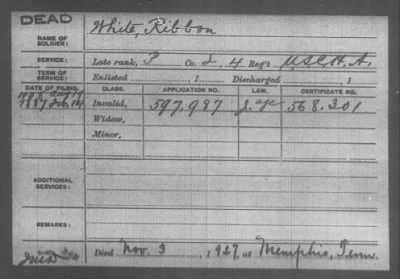 DEAD
NAME OF SOLDIER: White, Ribbon
SERVICE: Late rank, P Co. I, 4 Reg't U.S.C.H.A.
TERM OF SERVICE: Enlisted , 1 Discharged , 1
DATE OF FILING. CLASS. APPLICATION NO. LAW. CERTIFICATE NO.
1887 Invalid, 597,987 568.301
Widow,
Minor,
ADDITIONAL SERVICES:
REMARKS:
Died Nov. 3, 1927, at Memphis, Tenn.